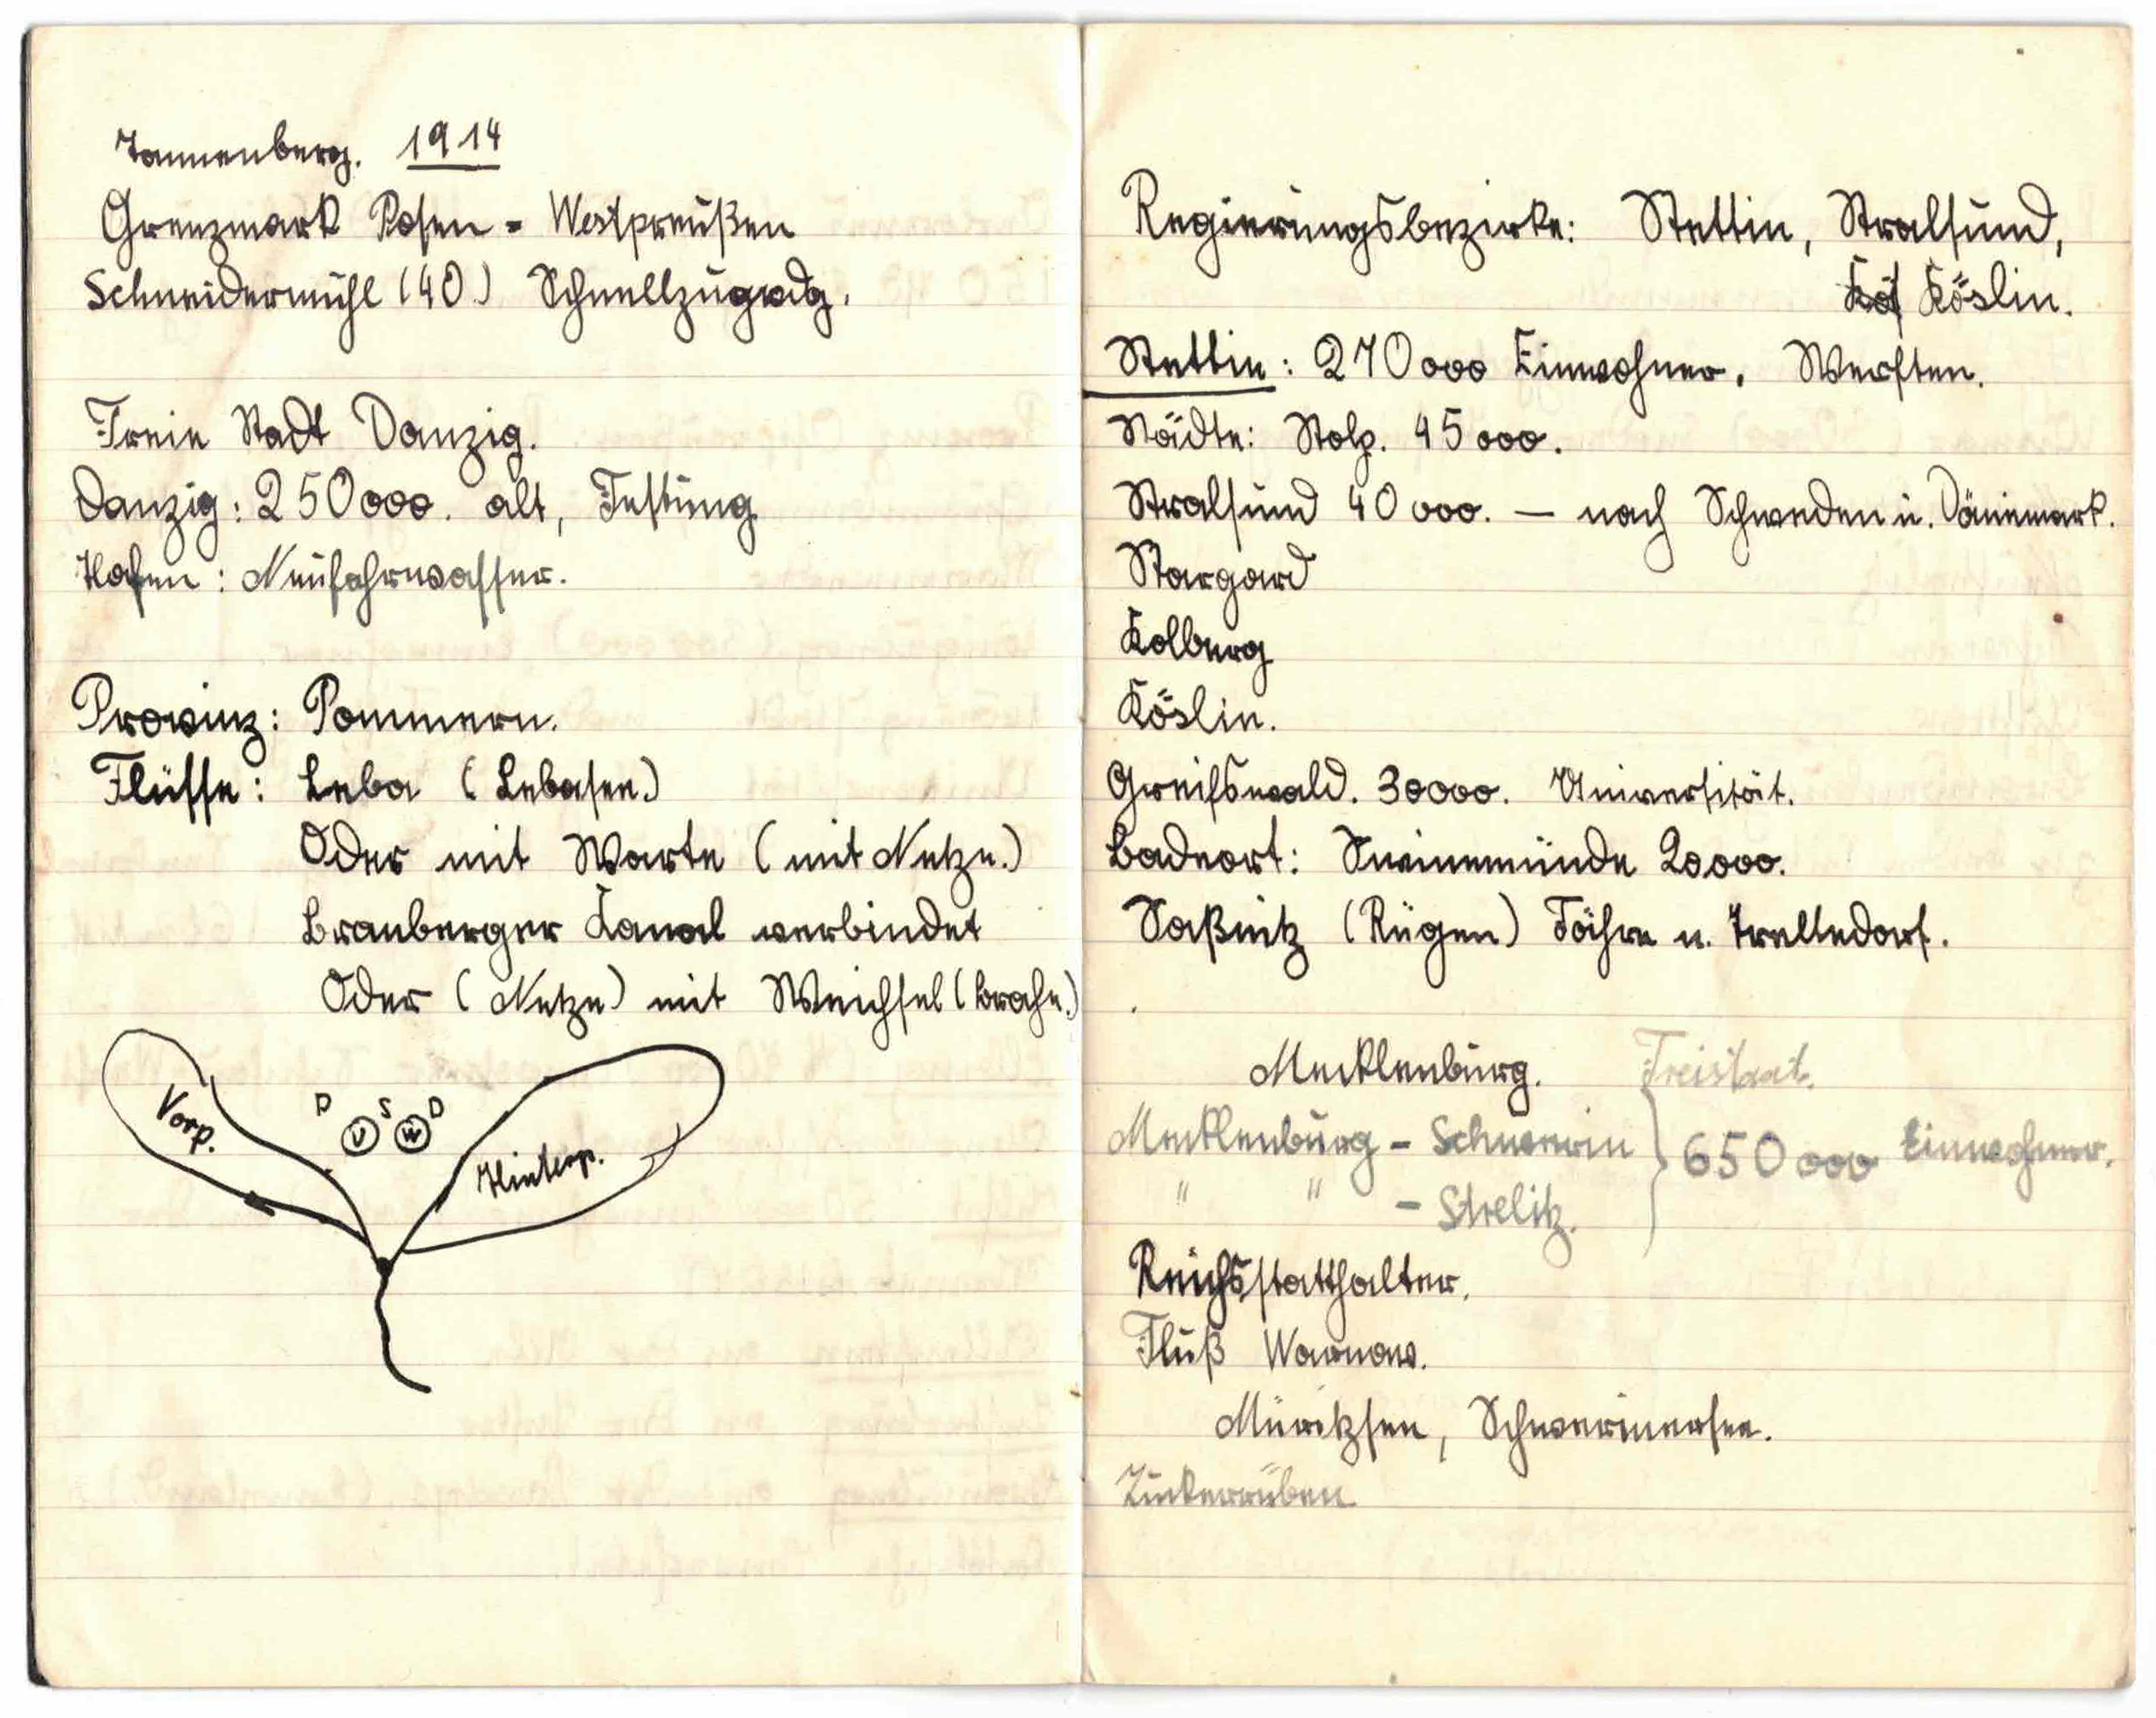 Tannenberg. 1914
Grenzmark Posen = Westpreußen
Schneidemühl (40)
Freie Stadt Danzig.
Danzig: 250000. alt, Festung
Hafen: Neufahrwasser.
Provinz: Pommern.
Flüsse: Leba (Lebasee.)
Oder mit Warte (mit Netze.)
Bramberger Kanal verbindet
Oder (Netze) mit Weichsel (Brahe.)
P S D
Vorp. U W
Hinterp.
Regierungsbezirke: Stettin, Stralsund,
Kös Köslin.
Stettin: 270000 Einwohner. Werften.
Städte: Stolp. 45000.
Stralsund 40000. – nach Schweden u. Dänemark.
Stargard
Kolberg
Köslin.
Greifswald. 30000. Universität.
Badeort: Swinemünde 20000.
Saßnitz (Rügen) Fähre n. Trelledorf.
Mecklenburg. Freistaat.
Mecklenburg - Schwerin } 650000 Einwohner.
" " - Strelitz.
Reichsstatthalter.
Fluß Warnow.
Müritzsee, Schwerinersee.
Zuckerrüben